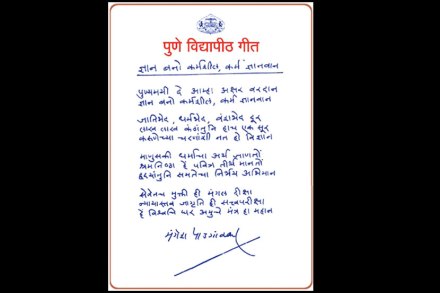 पुणे विद्यापीठ गीत
ज्ञान बनो कर्मशील, कर्म ज्ञानवान
पुण्यमयी दे आम्हा अक्षर वरदान
ज्ञान बनो कर्मशील, कर्म ज्ञानवान
जातिभेद, धर्मभेद, वंशभेद दूर
लाख लाख कंठांतुनि हाच एक सूर
करुणेच्या चरणांशी नत हो विज्ञान
माणुसकी धर्माचा अर्थ जाणतो
श्रमनिष्ठा हे पवित्र तीर्थ मानतो
हृदयांतुनि समतेचा निर्भय अभिमान
सेवेतच मुक्ती ही मंगल दीक्षा
न्यायास्तव जागृति ही सत्त्वपरीक्षा
हे विश्वचि घर अमुचे मंत्र हा महान
मंगेश पाडगांवकर